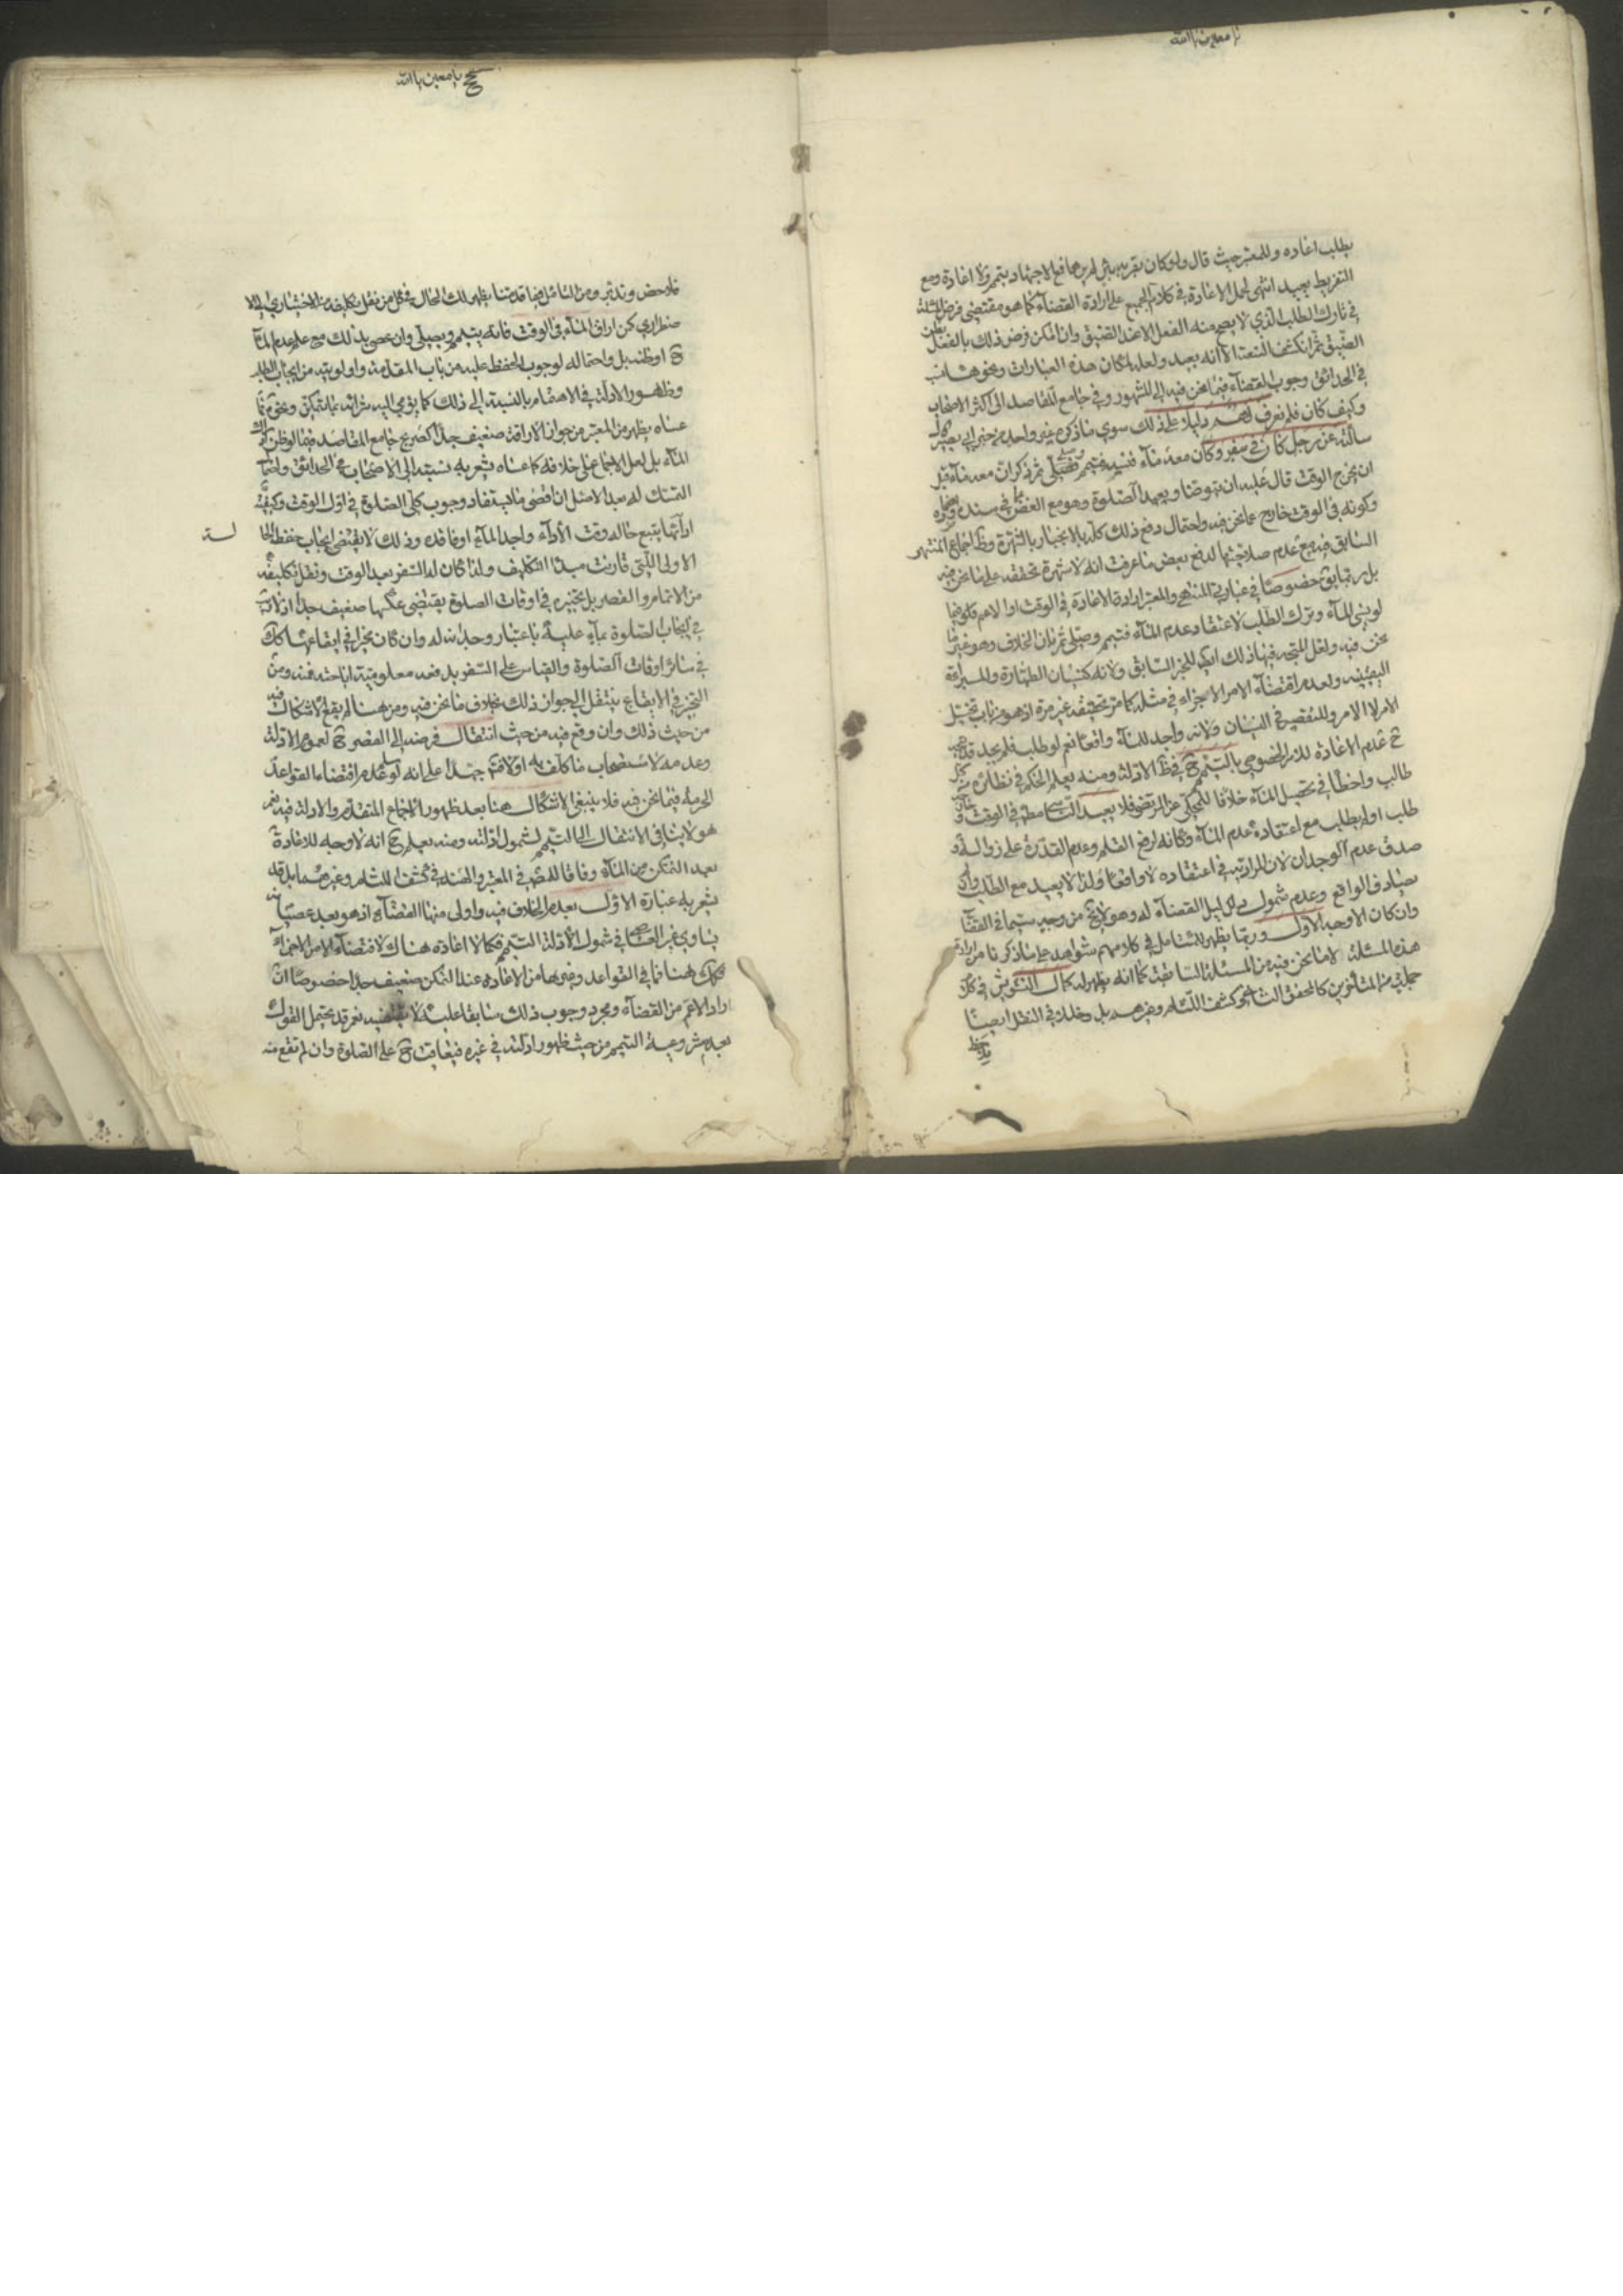 يا معين يا الله
يطلب اعاده وللمعتبر حيث قال ولو كان بقربه بئر لم يرها فمع الاجتهاد يتمم ولا اعادة ومع
التفريط يعيد انتهى لحمل الاعادة في كلام الجميع على ارادة القضاء كما هو مقتضى فرض المسئلة
في تارك الطلب الذي لا يصح منه الفعل الا عند الضيق وان امكن فرض ذلك بالفعل بظن
الضيق ثم انكشف السعة الا انه بعيد ولعله لمكان هذه العبارات ونحوها نسب
في الحدائق وجوب القضاء فيما نحن فيه الى المشهور وفي جامع المقاصد الى اكثر الاصحاب
وكيف كان فلم نعرف لهم دليلا على ذلك سوى ما ذكره غير واحد من خبر ابي بصير قال
سألته عن رجل كان في سفر وكان معه ماء فنسيه فتيمم وصلى ثم ذكر ان معه ماء قبل
ان يخرج الوقت قال عليه ان يتوضأ ويعيد الصلوة وهو مع الغض عما في سنده
وكونه في الوقت خارج عما نحن فيه واحتمال دفع ذلك كله بالانجبار بالشهرة وظاهر اجماع المنتهى
السابق فيه مع عدم صلاحيتها لدفع بعض ما عرفت انه لا شهرة محققة على ما نحن فيه
بل ربما خصوصا في عبارتي المنتهى والمعتبر ارادة الاعادة في الوقت او الاعم
لو نسي الماء وترك الطلب لاعتقاد عدم الماء فتيمم وصلى ثم بان الخلاف وهو غير ما
نحن فيه ولعل المتجه فيها ذلك ايضا للخبر السابق ولانه كنسيان الطهارة وللبراءة
اليقينية ولعدم اقتضاء الامر الاجزاء في مثله كما مر تحقيقه غير مرة اذ هو من باب تخيل
الامر لا الامر وللتقصير في النسيان ولانه واجد للماء واقعا نعم لو طلب فلم يجد
عدم الاعادة للامر الخصوصي بالتيمم ح في ظاهر الادلة ومنه يعلم الحكم في نظائره
طالب واخطأ في تحصيل الماء خلافا للمحكي عن المرتضى فلا يعيد الناسي مطلقا في الوقت
طلب او لم يطلب مع اعتقاده عدم الماء وكانه لرفع القلم وعدم القدرة على زواله
صدق عدم الوجدان لان المراد به في اعتقاده لا واقعا ولذا لا يعيد مع الطلب وان
يصادف الواقع وعدم شمول دليل القضاء له وهو لا يخ من وجه سيما في القضاء
وان كان الاوجه الاول وربما يظهر للمتأمل في كلامهم شواهد على ما ذكرنا من ارادة
هذه المسئلة لا ما نحن فيه من المسئلة السابقة كما انه يظهر له كمال التشويش في كلام
جملة من المتأخرين كالمحقق الثاني وكشف اللثام وغيرهم بل وخلل في النقل ايضا
يا معين يا الله
فلاحظ وتدبر ومن التأمل فيما قدمنا يظهر لك الحال في كل من نقل تكليفه من الاختياري الى الا
ضطراري كمن اراق الماء في الوقت فانه يتيمم ويصلي وان عصى بذلك مع علم عدم الماء
ح او ظنه بل واحتماله لوجوب الحفظ عليه من باب المقدمة واولويته من ايجاب الطلب
وظهور الادلة في الاهتمام بالنسبة الى ذلك كما يؤمي اليه شرائه بما يتمكن ونحوه فما
عساه يظهر من المعتبر من جواز الاراقة ضعيف جدا كصريح جامع المقاصد فيما لو ظن ادراك
الماء بل لعل الاجماع على خلافه كما عساه يشعر به نسبته الى الاصحاب في الحدائق واما
التمسك له بعد الاصل ان اقصى ما يستفاد وجوب كلي الصلوة في اول الوقت وكيفية
ادائها يتبع حاله وقت الاداء واجد الماء او فاقده وذلك لا يقتضي ايجاب حفظ الحا
لـة
الاولى التي قارنت مبدأ التكليف ولذا كان له السفر بعد الوقت ونقل تكليفه
من الاتمام والقصر بل تخييره في اوقات الصلوة يقتضي عدمها ضعيف جدا
في ايجاب الصلوة بماء عليه باعتبار وجدانه له وان كان مخيرا في ايقاعها كك
في سائر اوقات الصلوة والقياس على السفر بل فعد معلومية اباحته فيه ومن
التخيير في الايقاع ينتقل الى جواز ذلك بخلاف ما نحن فيه ومن هنا لم يقع الاشكال فيه
من حيث ذلك وان وقع فيه من حيث انتقال فرضه الى القصر ح لعموم الادلة
وعدمه لاستصحاب ما كلف به اولا على انه لو سلم عدم اقتضاء القواعد
الحرمة فيما نحن فيه فلا ينبغي الاشكال هنا بعد ظهور الاجماع المتقدم والادلة فيه نعم
هو لا ينافي الانتقال الى التيمم لشمول ادلته ومنه يعلم ح انه لا وجه للاعادة
بعد التمكن من الماء وفاقا للمصنف في المعتبر والهندي في كشف اللثام وغيرهما بل قد
يشعر به عبارة الاول بعدم الخلاف فيه واولى منها القضاء اذ هو بعد عصيانه
يساوي غير العاصي في شمول الادلة التيمم فكما لا اعادة هناك لاقتضاء الامر الاجزاء
فكك هنا فما في القواعد وغيرها من الاعادة عند التمكن ضعيف جدا خصوصا ان
اراد الاعم من القضاء ومجرد وجوب ذلك سابقا عليه لا يقتضيه نعم قد يحتمل القول
بعدم مشروعية التيمم من حيث ظهور ادلته في غيره فيعاقب ح على الصلوة وان لم تقع منه